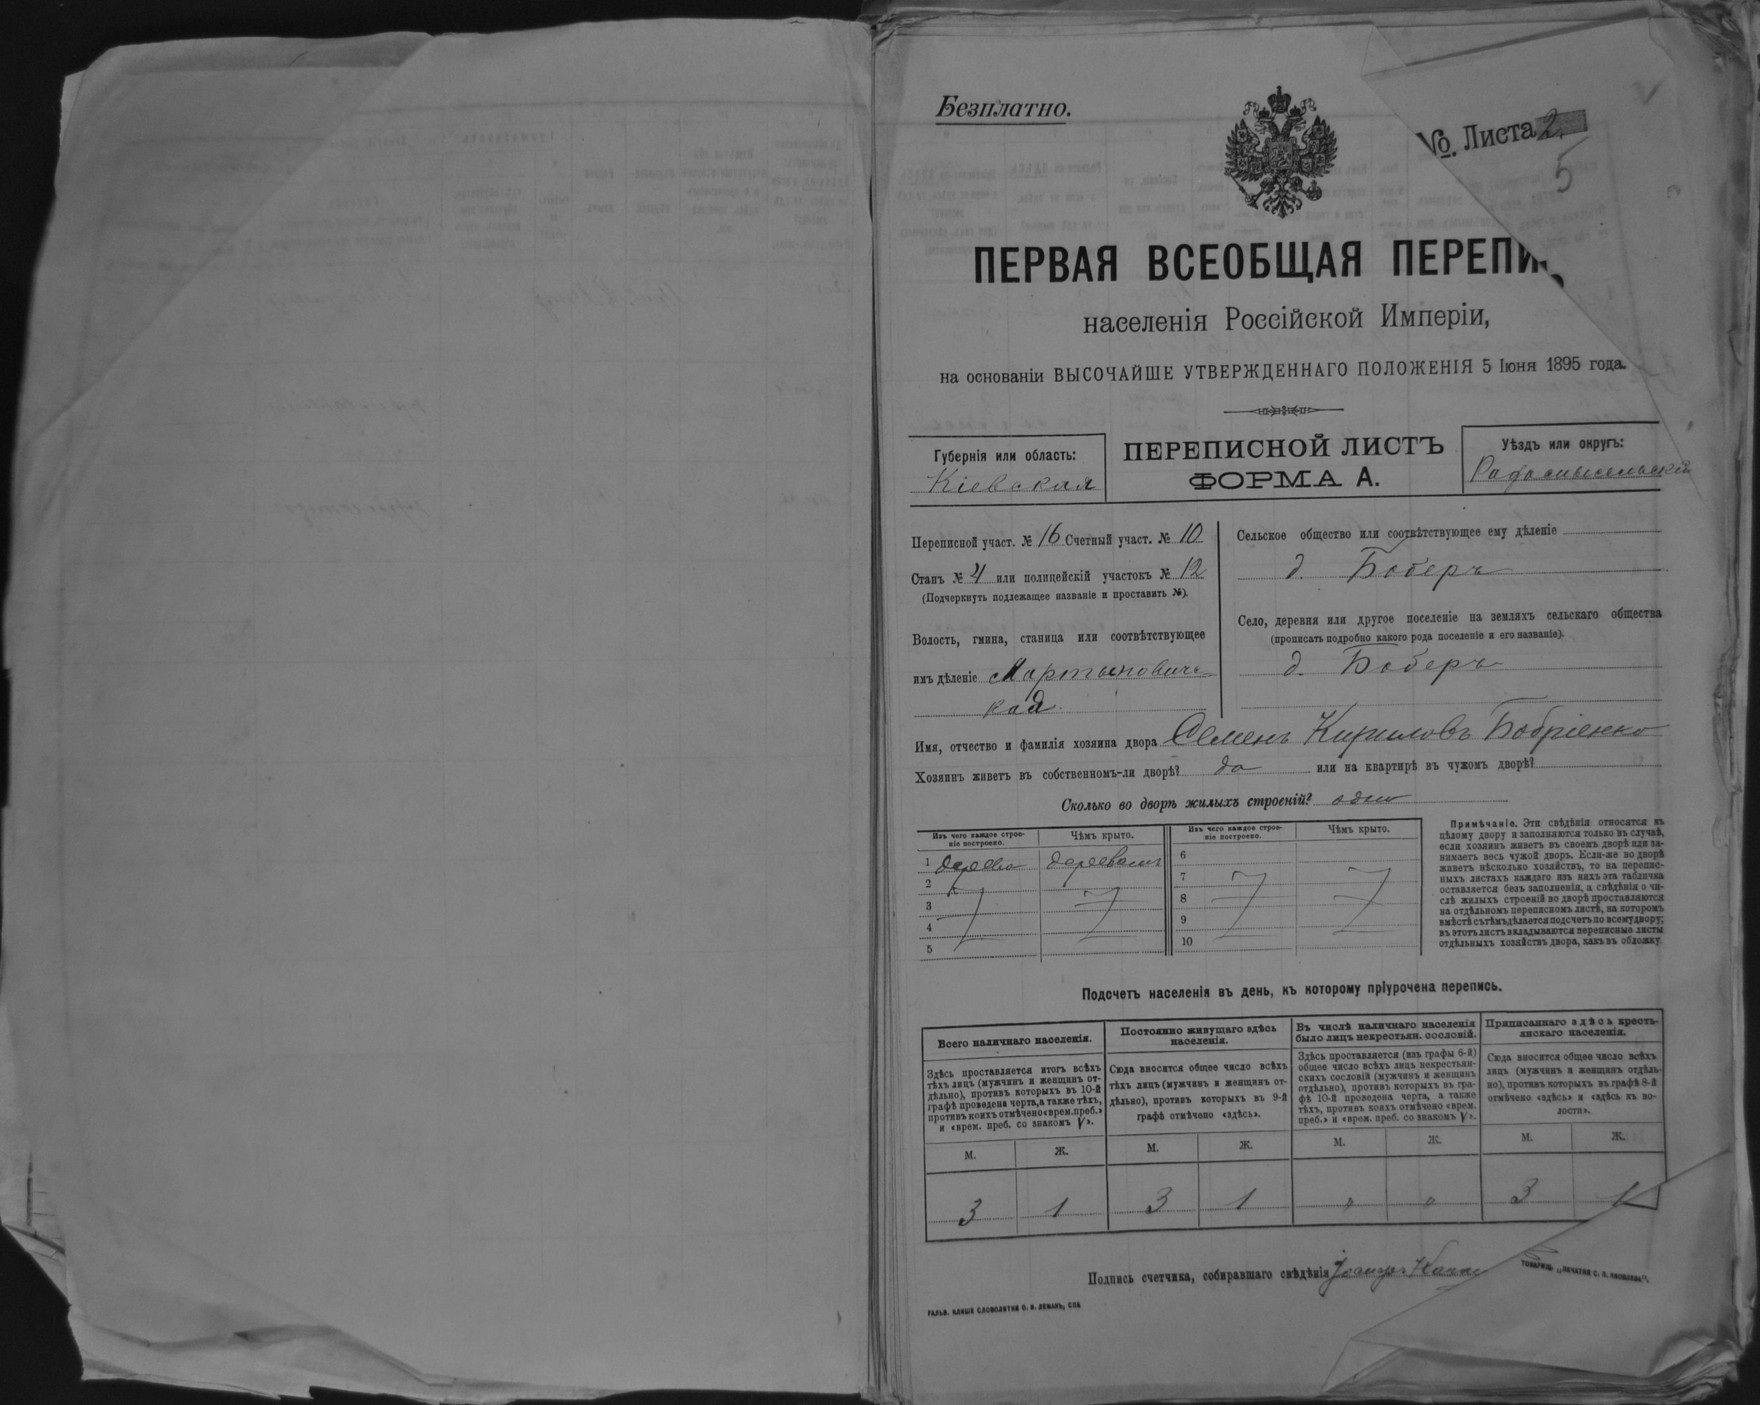 Безплатно.
№. Листа 2.
5
ПЕРВАЯ ВСЕОБЩАЯ ПЕРЕПИ
населенія Россійской Имперіи,
на основаніи ВЫСОЧАЙШЕ УТВЕРЖДЕННАГО ПОЛОЖЕНІЯ 5 Іюня 1895 года.
Губернія или область:
Кіевская
ПЕРЕПИСНОЙ ЛИСТЪ
ФОРМА А.
Уѣздъ или округъ:
Радомысльскій
Переписной участ. № 16 Счетный участ. № 10
Станъ № 4 или полицейскій участокъ № 12
(Подчеркнуть подлежащее названіе и проставить №).
Волость, гмина, станица или соотвѣтствующее
имъ дѣленіе Мартынович-
кая.
Сельское общество или соотвѣтствующее ему дѣленіе
д. Боберъ
Село, деревня или другое поселеніе на земляхъ сельскаго общества
(прописать подробно какого рода поселеніе и его названіе).
д. Боберъ
Имя, отчество и фамилія хозяина двора Семенъ Кириловъ Бобріенко
Хозяинъ живетъ въ собственномъ-ли дворѣ? да или на квартирѣ въ чужомъ дворѣ?
Сколько во дворѣ жилыхъ строеній? один
Изъ чего каждое строе-
ніе построено.
Чѣмъ крыто.
Изъ чего каждое строе-
ніе построено.
Чѣмъ крыто.
1 дерева деревомъ
2
3
4
5
6
7
8
9
10
Примѣчаніе. Эти свѣдѣнія относятся къ
цѣлому двору и заполняются только въ случаѣ,
если хозяинъ живетъ въ своемъ дворѣ или за-
нимаетъ весь чужой дворъ. Если-же во дворѣ
живетъ нѣсколько хозяйствъ, то на перепис-
ныхъ листахъ каждаго изъ нихъ эта табличка
оставляется безъ заполненія, а свѣдѣнія о чи-
слѣ жилыхъ строеній во дворѣ проставляются
на отдѣльномъ переписномъ листѣ, на которомъ
вмѣстѣ съ тѣмъ дѣлается подсчетъ по всему двору;
въ этотъ листъ вкладываются переписные листы
отдѣльныхъ хозяйствъ двора, какъ въ обложку.
Подсчетъ населенія въ день, къ которому пріурочена перепись.
Всего наличнаго населенія.
Здѣсь проставляется итогъ всѣхъ
тѣхъ лицъ (мужчинъ и женщинъ от-
дѣльно), противъ которыхъ въ 10-й
графѣ проведена черта, а также тѣхъ,
противъ коихъ отмѣчено «врем. преб.»
и «врем. преб. со знакомъ V».
Постоянно живущаго здѣсь
населенія.
Сюда вносится общее число всѣхъ
тѣхъ лицъ (мужчинъ и женщинъ от-
дѣльно), противъ которыхъ въ 9-й
графѣ отмѣчено «здѣсь».
Въ числѣ наличнаго населенія
было лицъ некрестьян. сословій.
Здѣсь проставляется (изъ графы 6-й)
общее число всѣхъ лицъ некрестьян-
скихъ сословій (мужчинъ и женщинъ
отдѣльно), противъ которыхъ въ гра-
фѣ 10-й проведена черта, а также
тѣхъ, противъ коихъ отмѣчено «врем.
преб.» и «врем. преб. со знакомъ V».
Приписаннаго здѣсь кресть-
янскаго населенія.
Сюда вносится общее число всѣхъ
лицъ (мужчинъ и женщинъ отдѣль-
но), противъ которыхъ въ графѣ 8-й
отмѣчено «здѣсь» и «здѣсь къ во-
лости».
М. Ж. М. Ж. М. Ж. М. Ж.
3 1 3 1 " " 3 1
Подпись счетчика, собиравшаго свѣдѣнія
ФАЛЬЦ. КЛИШЕ СЛОВОЛИТНИ О. И. ЛЕМАНЪ, СПБ
ТОВАРИЩ. „ПЕЧАТНЯ С. П. ЯКОВЛЕВА".